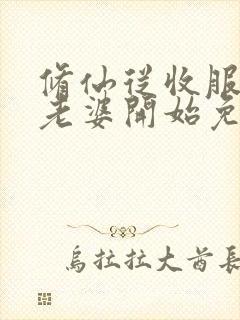 脩仙從收服
老婆開始免
烏拉拉大酋長